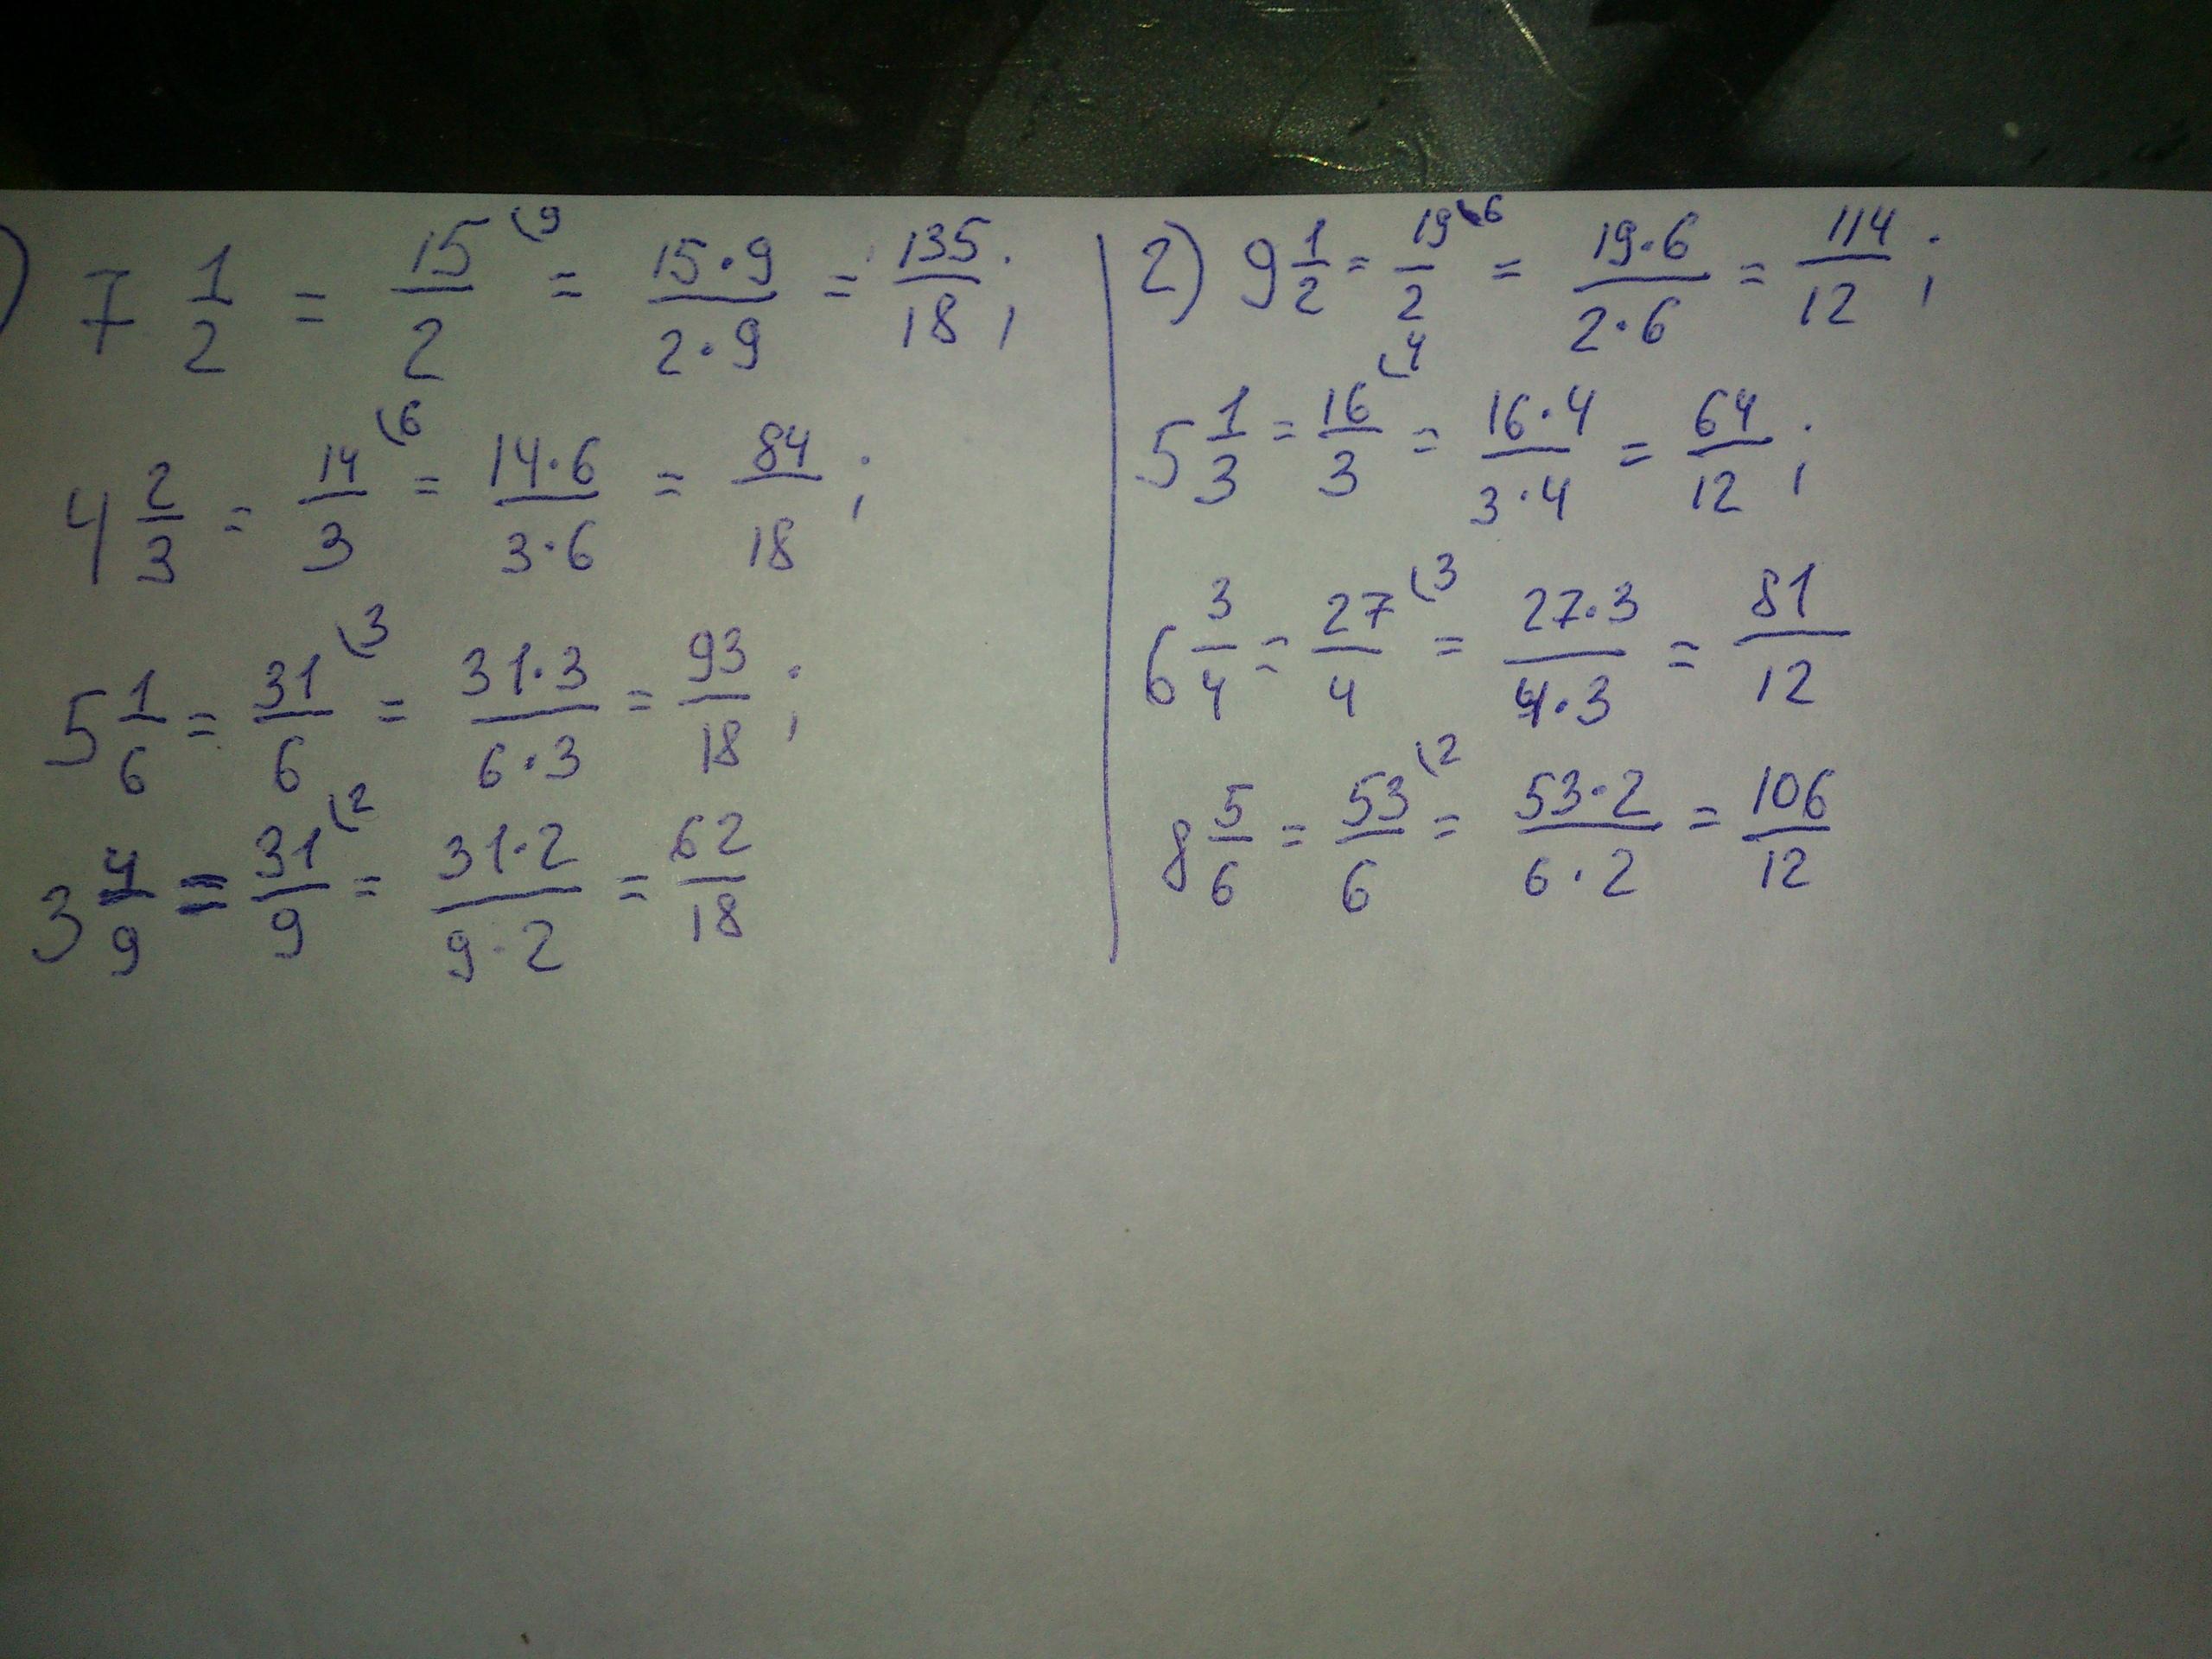 ) 7 1/2 = 15/2 (9 = 15·9/2·9 = 135/18;
4 2/3 = 14/3 (6 = 14·6/3·6 = 84/18;
5 1/6 = 31/6 (3 = 31·3/6·3 = 93/18;
3 4/9 = 31/9 (2 = 31·2/9·2 = 62/18
2) 9 1/2 = 19/2 (6 = 19·6/2·6 = 114/12;
5 1/3 = 16/3 (4 = 16·4/3·4 = 64/12;
6 3/4 = 27/4 (3 = 27·3/4·3 = 81/12
8 5/6 = 53/6 (2 = 53·2/6·2 = 106/12